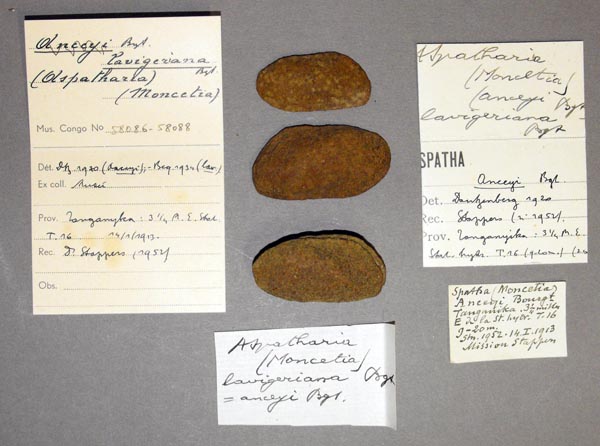 Anceyi Bgt.
lavigeriana Bgt.
(Aspatharia)
(Moncetia)
Mus. Congo No 58086-58088
Dét. Dtz 1920 (anceyi);- Beq 1934 (lav.)
Ex coll.
Prov. Tanganyka : 3 1/4 M. E. Stat.
T.16 14/1/1913.
Rec. Dr Stappers (1952)
Obs.
Aspatharia
(Moncetia)
(anceyi Bgt
lavigeriana
Bgt
SPATHA
Anceyi Bgt.
Det. Dautzenberg 1920
Rec. Stappers (n: 1952)
Prov. Tanganyika : 3 1/4 M. E.
Stat. hydr. T.16 (9-20m.)
Spatha (Moncetia)
Anceyi Bourgt
Tanganika. 3 1/4 milles
E de la St. hydr. T.16
9-20m.
Stn. 1952.-14.I.1913
Mission Stappers
Aspatharia
(Moncetia)
lavigeriana Bgt
= anceyi Bgt.